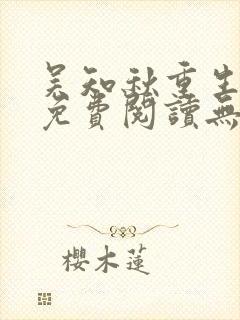 吴知秋重生
免費閱讀無
櫻木蓮